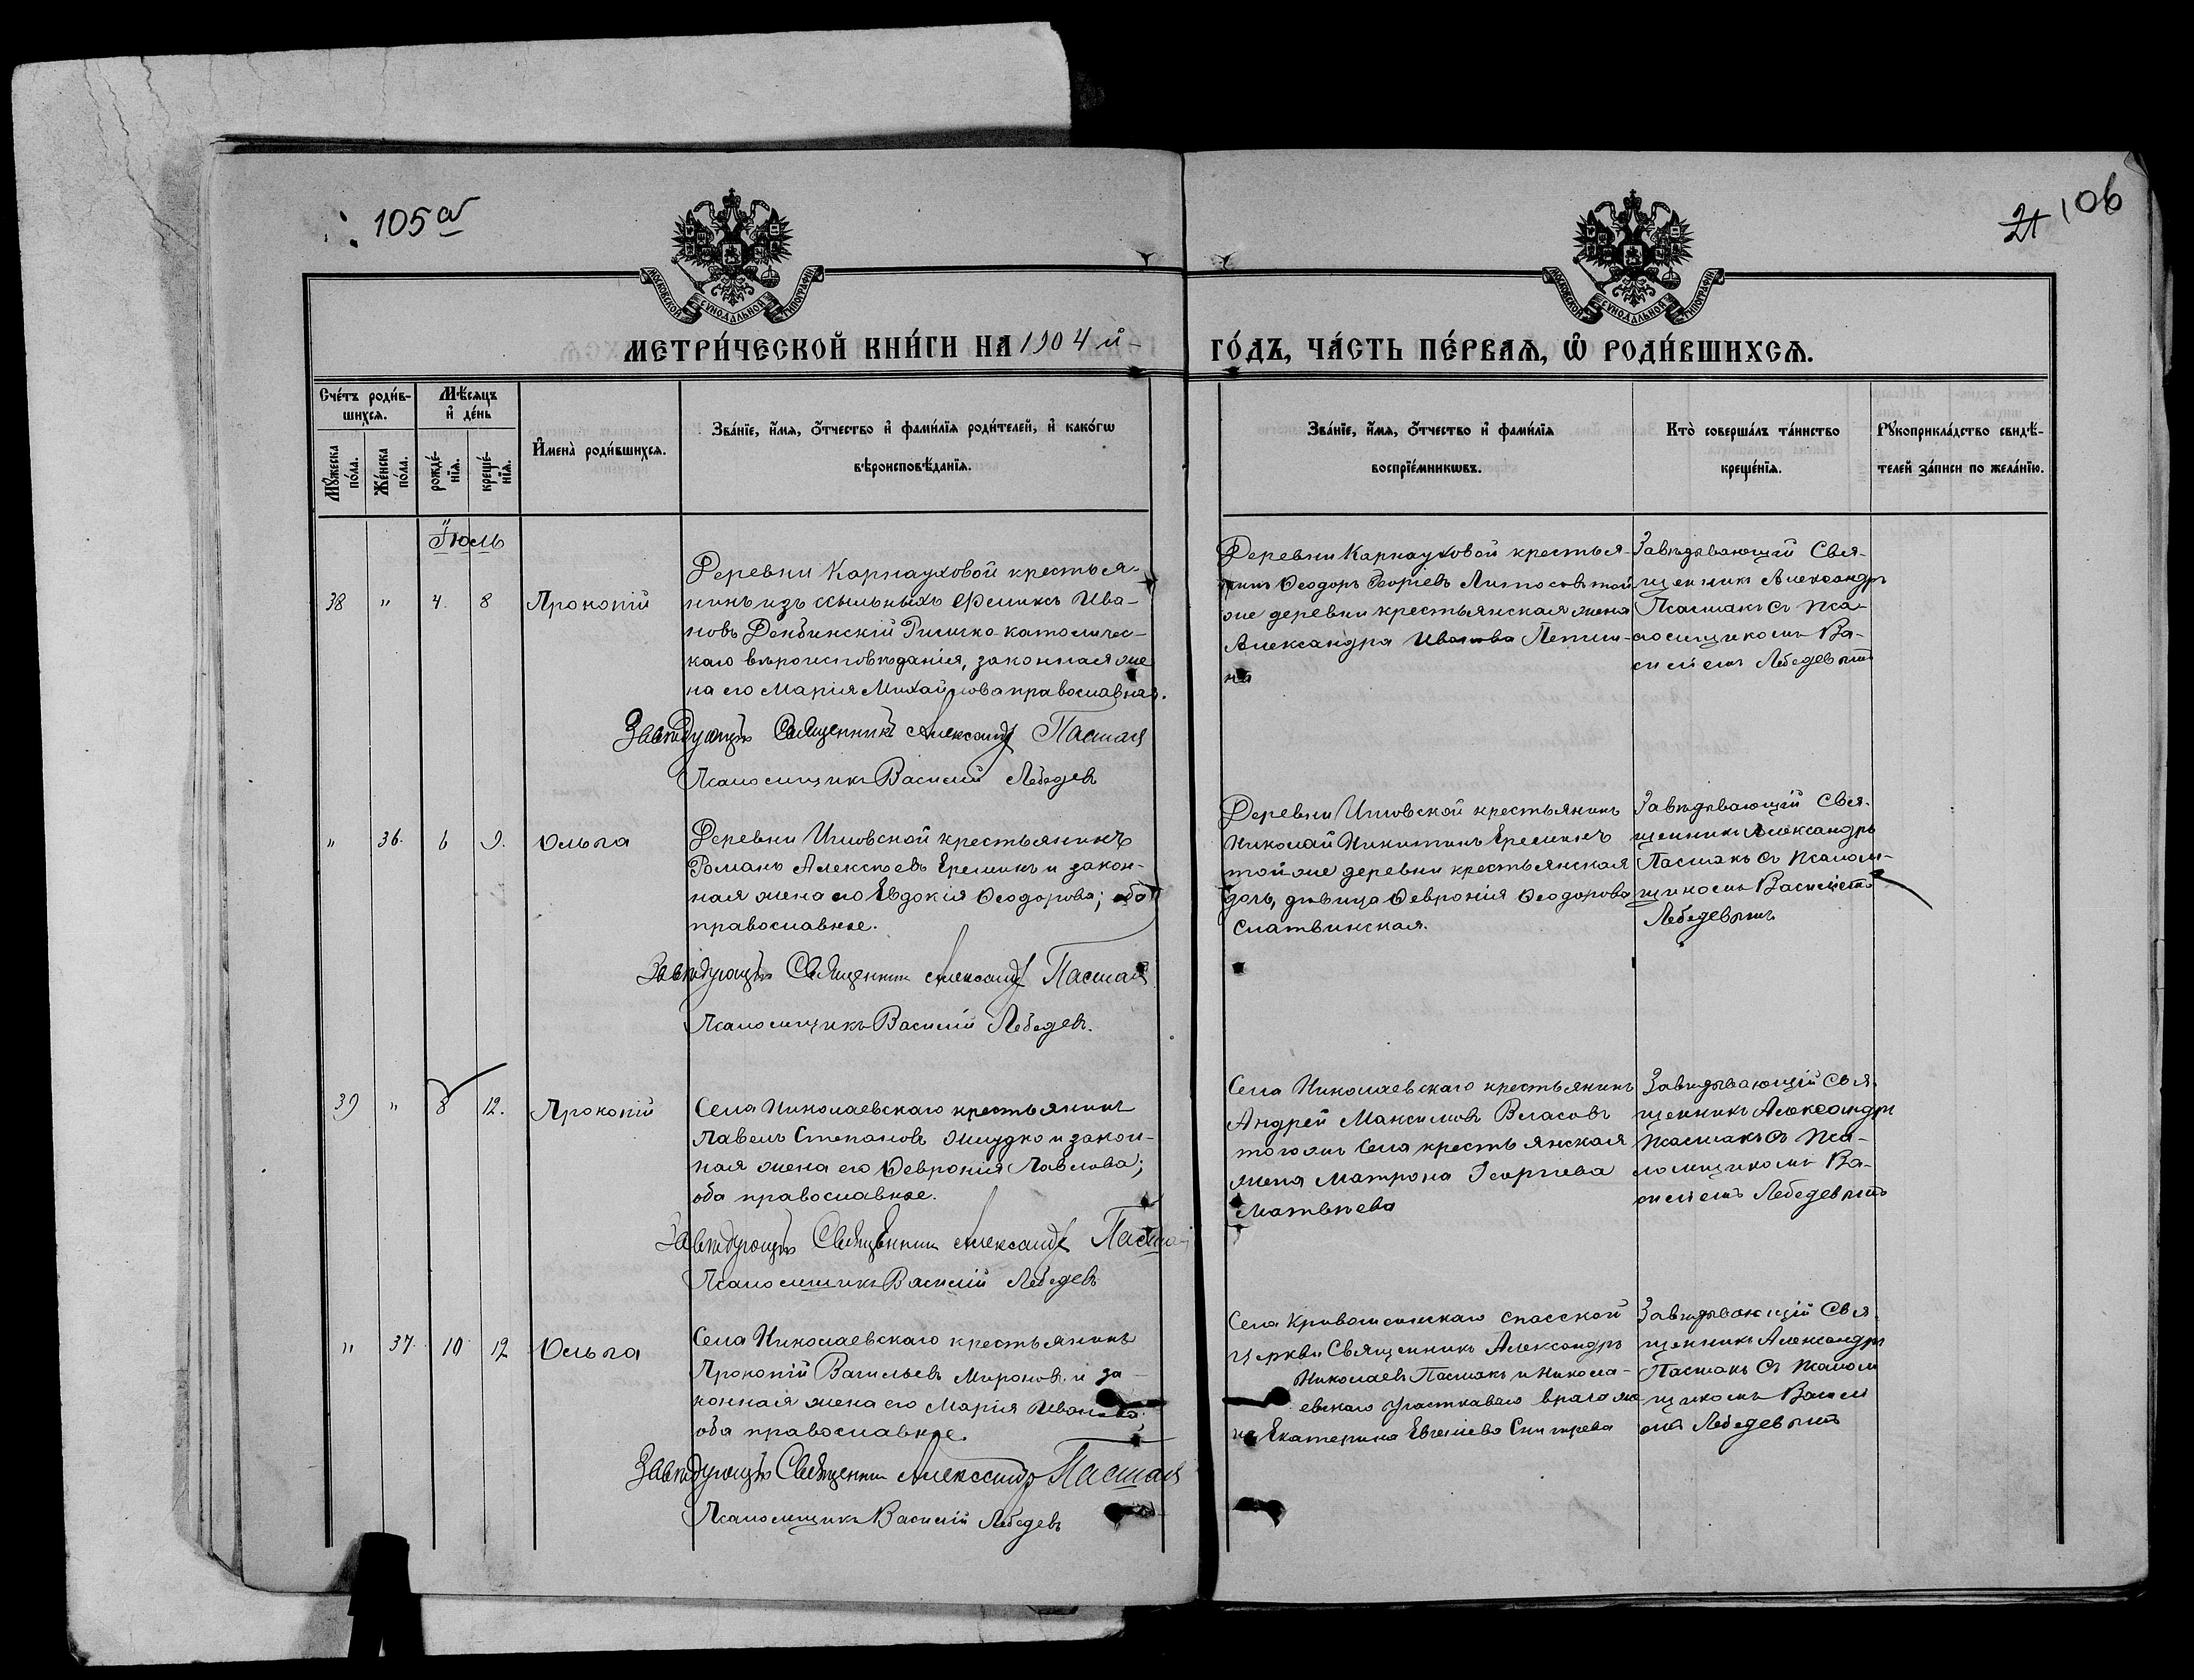 105 а
21 106
МОСКОВСКОЙ СѴНОДАЛЬНОЙ ТИПОГРАФІИ
МОСКОВСКОЙ СѴНОДАЛЬНОЙ ТИПОГРАФІИ
МЕТРИ́ЧЕСКОЙ КНИ́ГИ НА 1904 й
ГО́ДЪ, ЧА́СТЬ ПЕ́РВАѦ, Ѡ҆ РОДИ́ВШИХСѦ.
Сче́тъ роди́в-
шихсѧ.
Мꙋ́жеска
по́ла.
Же́нска
по́ла.
Мѣ́сѧцъ
и҆ де́нь
рожде́-
нїѧ.
креще́-
нїѧ.
И҆мена̀ роди́вшихсѧ.
Зва́нїе, и҆́мѧ, ѻ҆́тчество и҆ фами́лїѧ роди́телей, и҆ како́гѡ
вѣроисповѣ́данїѧ.
Зва́нїе, и҆́мѧ, ѻ҆́тчество и҆ фами́лїѧ
воспрїе́мникѡвъ.
Кто̀ соверша́лъ та́инство
креще́нїѧ.
Рꙋкоприкла́дство свидѣ́-
телей за́писи по жела́нїю.
Іюль
38 " 4. 8 Прокопій
Деревни Карнауховой крестья-
нинъ изъ ссыльныхъ Феликсъ Ива-
новъ Денбинскій Римско-католичес-
каго вѣроисповѣданія, законная же
на его Марія Михайлова православная.
Завѣдующій Священникъ Александръ Пасмакъ
Псаломщикъ Василій Лебедевъ
Деревни Карнауховой крестья-
нинъ Ѳеодоръ Георгіевъ той
же деревни крестьянская жена
Александра Иванова
на
Завѣдывающій Свя-
щенникъ Александръ
Пасмакъ съ Пса-
ломщикомъ Ва-
силіемъ Лебедевымъ
" 36. 6 9. Ольга
Деревни Иловской крестьянинъ
Романъ Алексѣевъ Ереминъ и закон-
ная жена его Евдокія Ѳеодорова; оба
православные.
Завѣдующій Священникъ Александръ Пасмакъ
Псаломщикъ Василій Лебедевъ.
Деревни Иловской крестьянинъ
Николай Никитинъ Ереминъ
той же деревни крестьянская
дочь, дѣвица Ѳевронія Ѳеодорова
Слатвинская.
Завѣдывающій Свя-
щенникъ Александръ
Пасмакъ съ Псалом-
щикомъ Василіемъ
Лебедевымъ
39 " 8 12. Прокопій
Села Николаевскаго крестьянинъ
Павелъ Степановъ и закон-
ная жена его Ѳевронія Павлова;
оба православные.
Завѣдующій Священникъ Александръ Пасмакъ
Псаломщикъ Василій Лебедевъ
Села Николаевскаго крестьянинъ
Андрей Максимовъ Власовъ
того же Села крестьянская
жена Матрона Георгіева
Матвѣева
Завѣдывающій Свя-
щенникъ Александръ
Пасмакъ съ Пса-
ломщикомъ Ва-
силіемъ Лебедевымъ
" 37. 10 12 Ольга
Села Николаевскаго крестьянинъ
Прокопій Васильевъ Мироновъ и за-
конная жена его Марія Иванова;
оба православные.
Завѣдующій Священникъ Александръ Пасмакъ
Псаломщикъ Василій Лебедевъ
Села Кривошеинскаго Спасской
церкви Священникъ Александръ
Николаевъ Пасмакъ и Никола-
евскаго участковаго врача же
на Екатерина Евгеніева
Завѣдывающій Свя-
щенникъ Александръ
Пасмакъ съ Псалом
щикомъ Васили
емъ Лебедевымъ